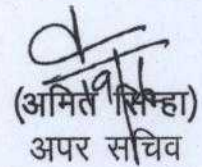 (अमित सिन्हा)
अपर सचिव